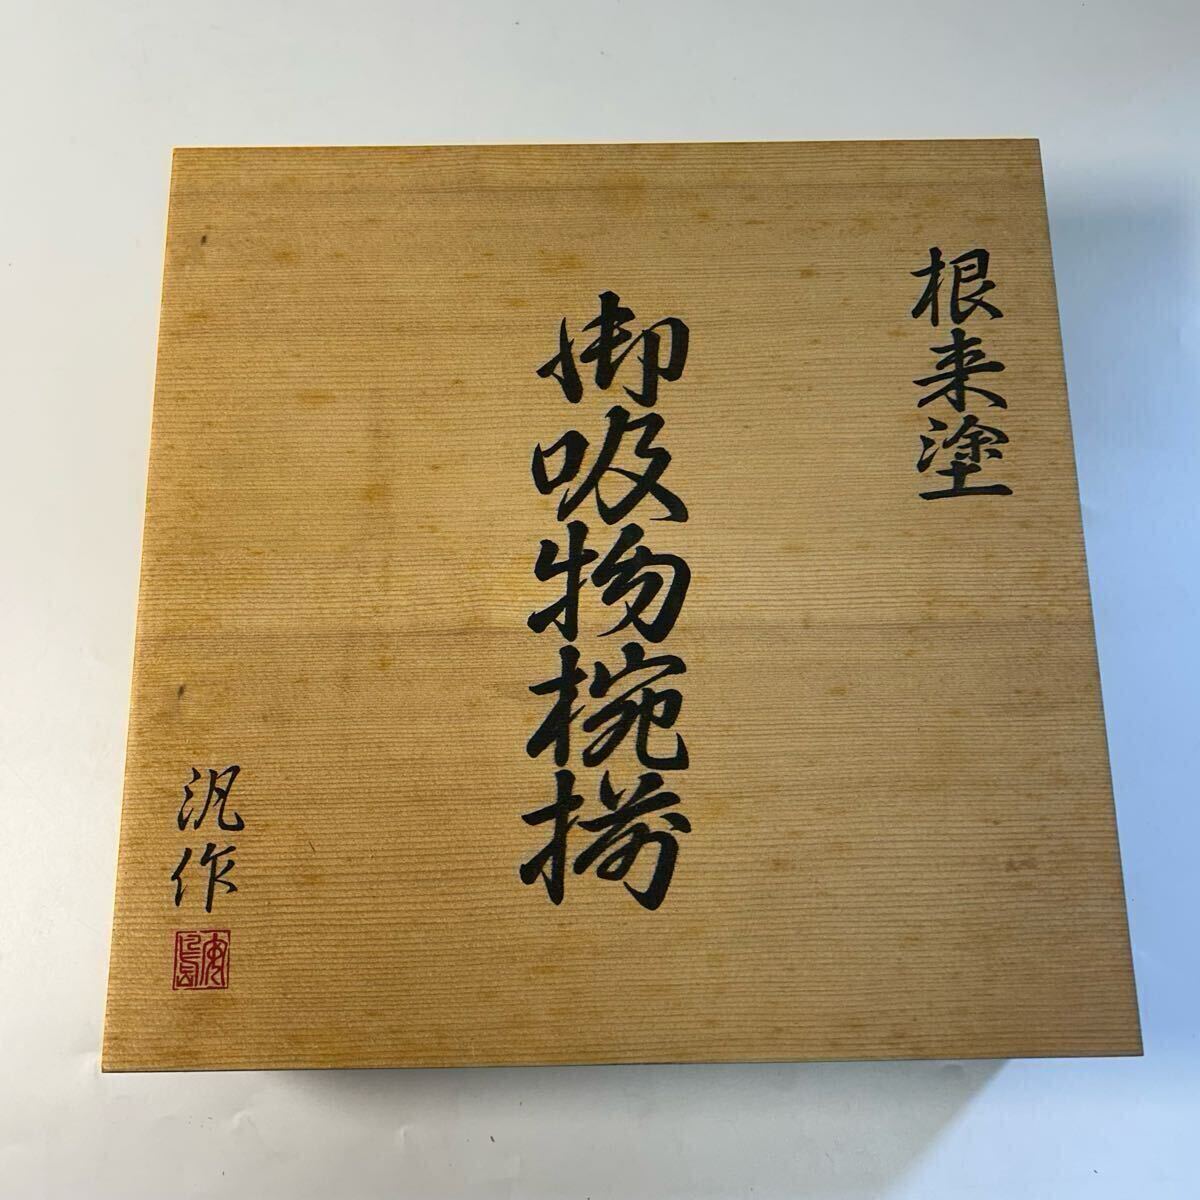 根来塗
御吸物椀揃
汎作